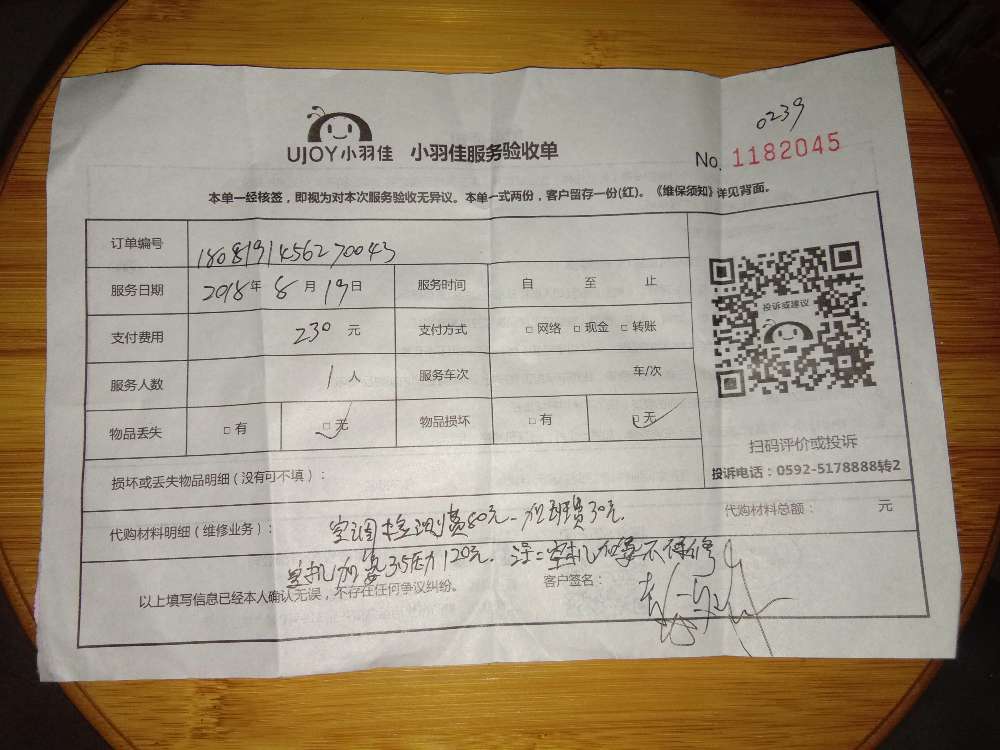 0239
UJOY小羽佳 小羽佳服务验收单
No. 1182045
本单一经核签，即视为对本次服务验收无异议。本单一式两份，客户留存一份(红)。《维保须知》详见背面。
订单编号 1808191456270043
服务日期 2018年 8月 19日 服务时间 自 至 止
支付费用 230 元 支付方式 □网络 □现金 □转账
服务人数 1人 服务车次 车/次
物品丢失 □有 □无 物品损坏 □有 □无
投诉或建议
扫码评价或投诉
投诉电话：0592-5178888转2
损坏或丢失物品明细（没有可不填）：
代购材料明细（维修业务）： 空调检测费80元 加班费30元.
代购材料总额： 元
空机加氟3.5压力120元. 注：空机加氟不保修
以上填写信息已经本人确认无误，不存在任何争议纠纷。 客户签名：